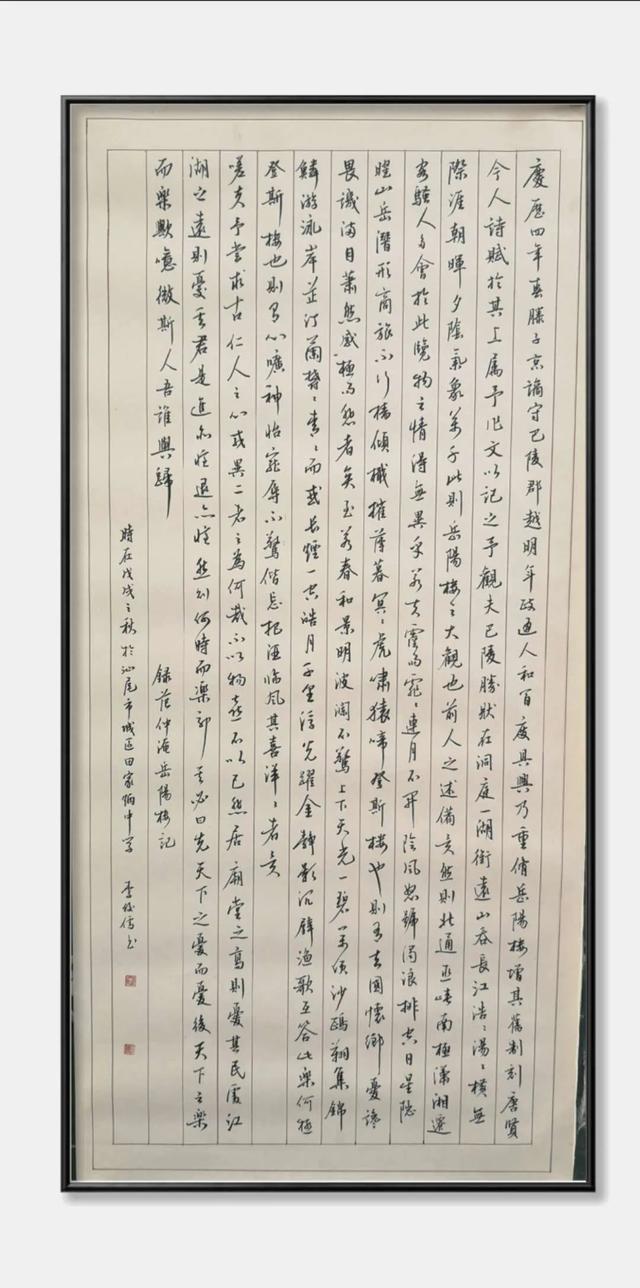 慶歷四年春滕子京謫守巴陵郡越明年政通人和百廢具興乃重脩岳陽樓增其舊制刻唐賢
今人詩賦於其上属予作文以記之予觀夫巴陵勝狀在洞庭一湖銜遠山吞長江浩〻湯〻橫無
際涯朝暉夕陰氣象萬千此則岳陽樓之大觀也前人之述備矣然則北通巫峽南極瀟湘遷
客騷人多會於此覽物之情得無異乎若夫霪雨霏〻連月不開陰風怒號濁浪排空日星隐
曜山岳潛形商旅不行檣傾檝摧薄暮冥〻虎嘯猿啼登斯樓也則有去國懷鄉憂讒
畏譏滿目蕭然感極而悲者矣至若春和景明波瀾不驚上下天光一碧萬頃沙鷗翔集錦
鱗游泳岸芷汀蘭馞〻青〻而或長煙一空皓月千里浮光躍金靜影沉壁漁歌互答此樂何極
登斯樓也則有心曠神怡寵辱不驚偕忘把酒臨風其喜洋〻者矣
嗟夫予嘗求古仁人之心或異二者之為何哉不以物喜不以己悲居廟堂之高則憂其民處江
湖之遠則憂其君是進亦憂退亦憂然則何時而樂耶其必曰先天下之憂而憂後天下之樂
而樂歟噫微斯人吾誰與歸
錄范仲淹岳陽樓記
時在戊戌之秋於汕尾市城區田家炳中學 李